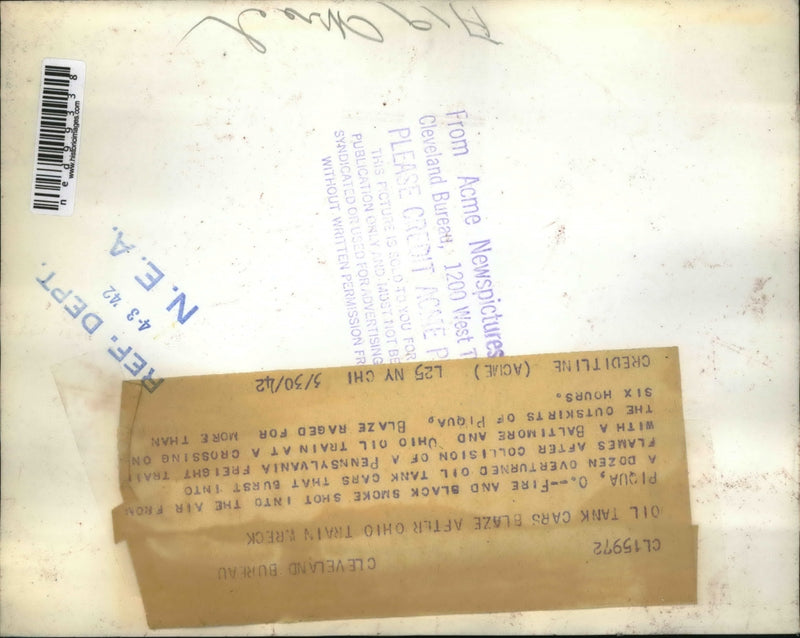 ned99338
www.historicimages.com
From Acme Newspictures
Cleveland Bureau, 1200 West T
PLEASE CREDIT ACME P
THIS PICTURE IS SOLD TO YOU FOR
PUBLICATION ONLY AND MUST NOT BE
SYNDICATED OR USED FOR ADVERTISING
WITHOUT WRITTEN PERMISSION FR
REF. DEPT.
4-3 '42
N.E.A.
CLEVELAND BUREAU
CL15972
OIL TANK CARS BLAZE AFTER OHIO TRAIN WRECK
PIQUA, O.--FIRE AND BLACK SMOKE SHOT INTO THE AIR FROM
A DOZEN OVERTURNED OIL TANK CARS THAT BURST INTO
FLAMES AFTER COLLISION OF A PENNSYLVANIA FREIGHT TRAI
WITH A BALTIMORE AND OHIO OIL TRAIN AT A CROSSING ON
THE OUTSKIRTS OF PIQUA. BLAZE RAGED FOR MORE THAN
SIX HOURS.
CREDITLINE (ACME) L25 NY CHI 3/30/42